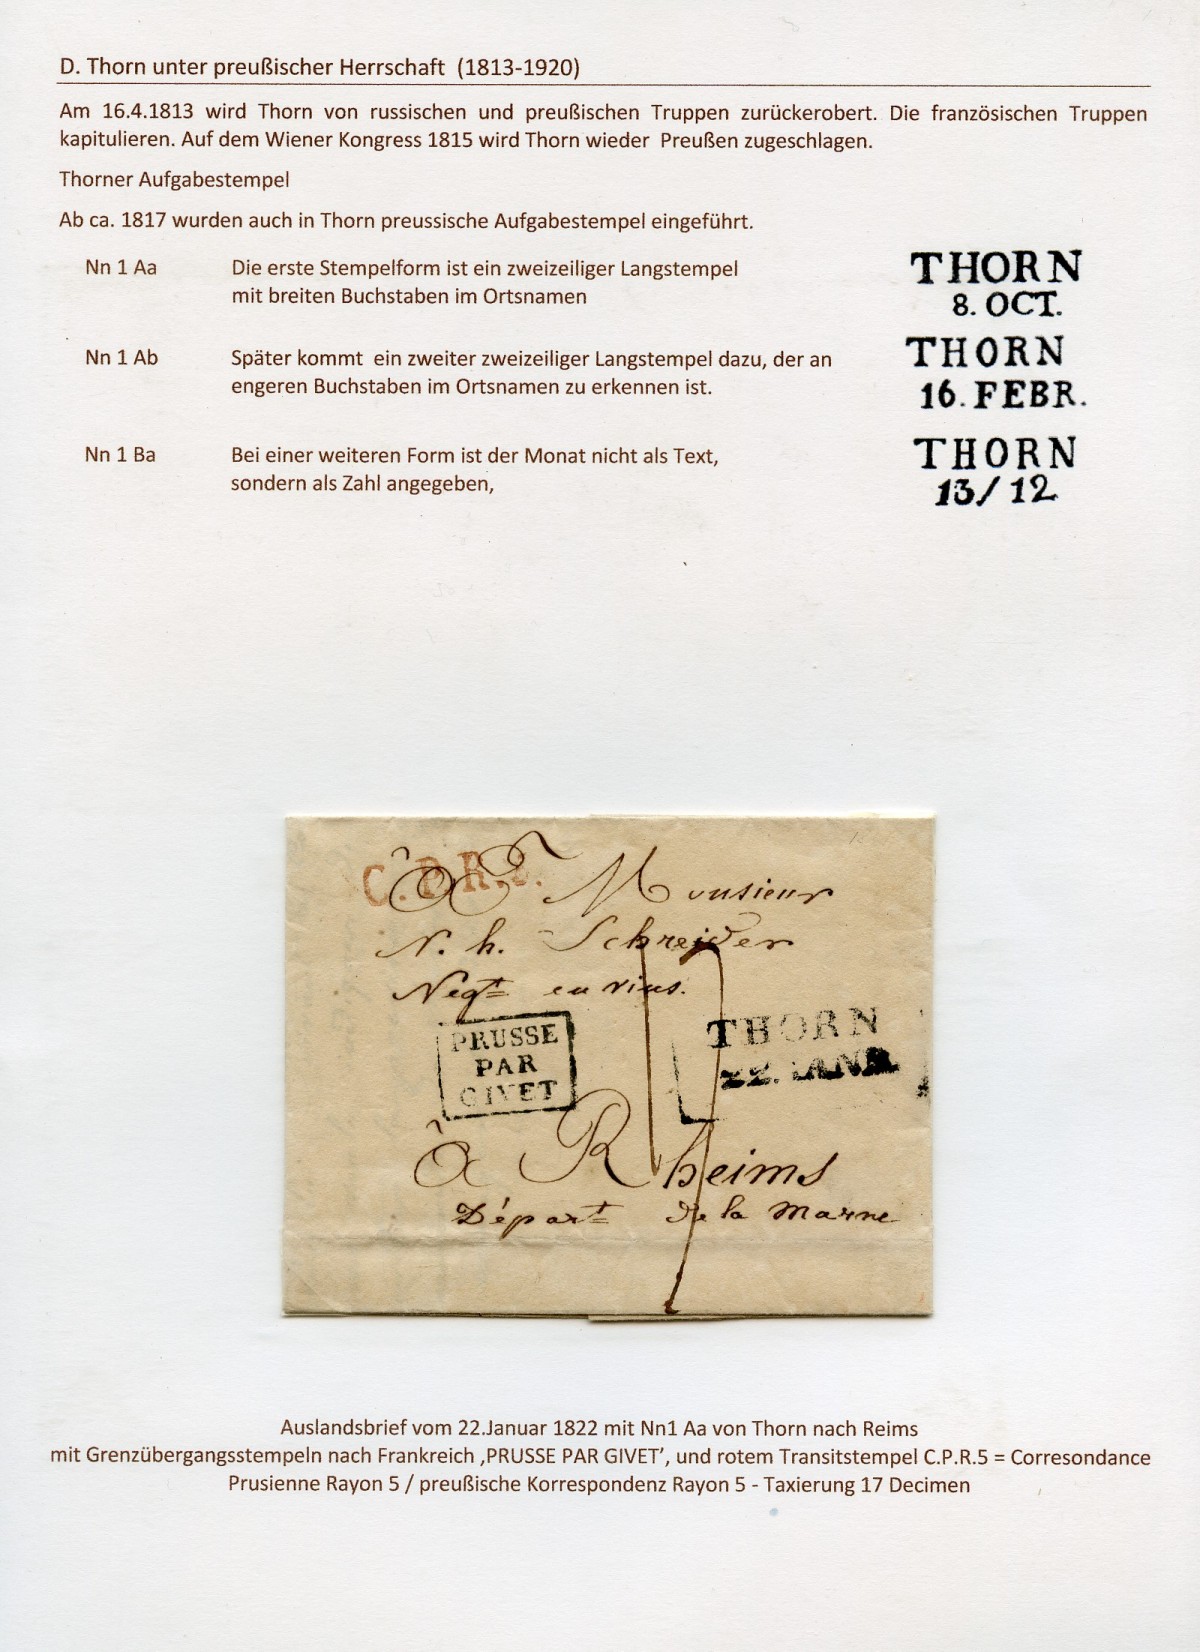 D. Thorn unter preußischer Herrschaft (1813-1920)
Am 16.4.1813 wird Thorn von russischen und preußischen Truppen zurückerobert. Die französischen Truppen
kapitulieren. Auf dem Wiener Kongress 1815 wird Thorn wieder Preußen zugeschlagen.
Thorner Aufgabestempel
Ab ca. 1817 wurden auch in Thorn preussische Aufgabestempel eingeführt.
Nn 1 Aa Die erste Stempelform ist ein zweizeiliger Langstempel
mit breiten Buchstaben im Ortsnamen
THORN
8. OCT.
Nn 1 Ab Später kommt ein zweiter zweizeiliger Langstempel dazu, der an
engeren Buchstaben im Ortsnamen zu erkennen ist.
THORN
16. FEBR.
Nn 1 Ba Bei einer weiteren Form ist der Monat nicht als Text,
sondern als Zahl angegeben,
THORN
13/12
C.P.R.5.
Monsieur
N. h. Schreider
Negt en vins.
PRUSSE
PAR
GIVET
THORN
22. IANR
17
à Rheims
Départ de la Marne
Auslandsbrief vom 22.Januar 1822 mit Nn1 Aa von Thorn nach Reims
mit Grenzübergangsstempeln nach Frankreich ‚PRUSSE PAR GIVET’, und rotem Transitstempel C.P.R.5 = Corresondance
Prusienne Rayon 5 / preußische Korrespondenz Rayon 5 - Taxierung 17 Decimen